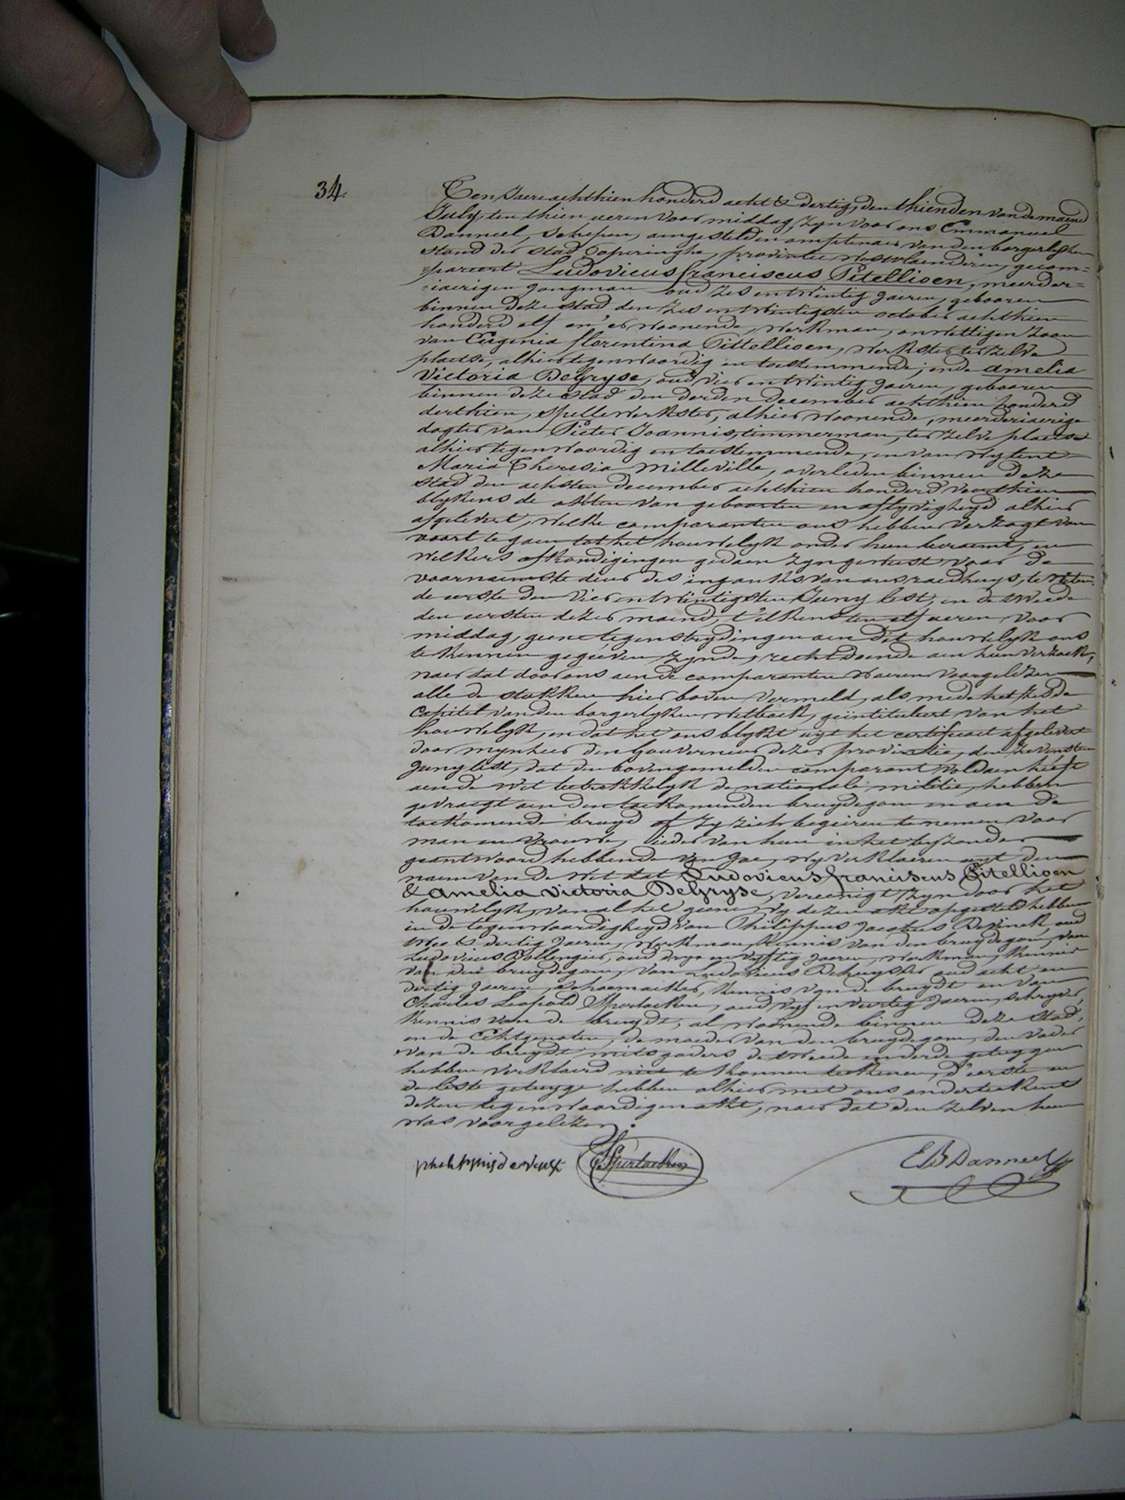 34.
Ten Jaere achthien honderd acht & dertig, den thienden van de maend
July, ten thien ueren voor middag, zyn voor ons Emmanuel
Danneel, Schepen, aengestelden amptenaer van den borgerlyken
stand der stad Poperinghe, provintie Westvlaenderen, gecom-
pareert Ludovicus franciscus Pitellioen, meerder-
jaerigen jongman, oud zes en twintig jaeren, gebooren
binnen deze stad den zes en twintigsten october achthien
honderd elf en er woonende, werkman, onwettigen zoon
van Eugenia florentina Pittellioen, werkster ter zelve
plaetse, alhier tegenwoordig en toestemmende; ende amelia
Victoria DeGryse, oud vier en twintig jaeren, gebooren
binnen deze stad den derden december achthien honderd
derthien, spellewerkster, alhier woonende, meerderjaerige
dogter van Pieter Joannis, timmerman, ter zelve plaetse
alhier tegenwoordig en toestemmende, en van wylent
Maria Theresia Milleville, overleden binnen deze
stad den achsten december achthien honderd veerthien
blykens de akten van geboorten en aflyvigheyd alhier
afgelevert, welke comparanten ons hebben verzogt van
voort te gaen tot het houwelyk onder hun beraemt, en
welkers afkondigingen gedaen zyn geweest voor de
voornaemste deur des ingangs van ons raedhuys, te weten:
de eerste den vier en twintigsten Juny lest, en de tweede
den eersten dezer maend, t'elkens ten elf ueren voor
middag, geene tegenstrydingen aen dit houwelyk ons
te kennen gegeven zynde, rechtdoende aen hun verzoek,
naer dat door ons aen de comparanten waeren voorgelezen
alle de stukken hier boven vermeld, als mede het zesde
capitel van den borgerlyken wetboek, geintituleert van het
houwelyk, en dat het ons blykt uyt het certificaet afgelevert
door mynheer den Gouverneur dezer provintie, den zevensten
Juny lest, dat den bovengemelden comparant voldaen heeft
aen de wet betrekkelyk de nationale militie, hebben
gevraegt aen den toekomenden bruydegom en aen de
toekomende bruyd of zy zich begeiren te nemen voor
man en vrouw, ieder van hun in het byzonder
geantwoord hebbende van Jae, wy verklaeren uyt den
naem van de wet dat Ludovicus franciscus Pitellioen
& amelia Victoria DeGryse, vereenigt zyn voor het
houwelyk, van al het geene wy dezen akt opgesteld hebben
in de tegenwoordigheyd van Philippus Jacobus Devinck, oud
twee & dertig jaeren, werkman, kennis van den bruydegom, van
Ludovicus Bollengier, oud drye en vyftig jaeren, werkman, kennis
van den bruydegom, van Ludovicus Dehuysser oud acht en
dertig jaeren, schoemaeker, kennis van de bruydt en van
Charles Leopold Sperlaeken, oud vyf en veertig jaeren, schryver,
kennis van de bruydt, al woonende binnen deze stad,
en de Echtgenoten, de moeder van den bruydegom, den vader
van de bruydt mitsgaders de tweede en derde getuygen
hebben verklaerd niet te konnen teekenen, d'eerste en
de leste getuyge hebben alhier met ons onderteekent
dezen tegenwoordigen akt, naer dat den zelven hun
was voorgelezen.
E B Danneel